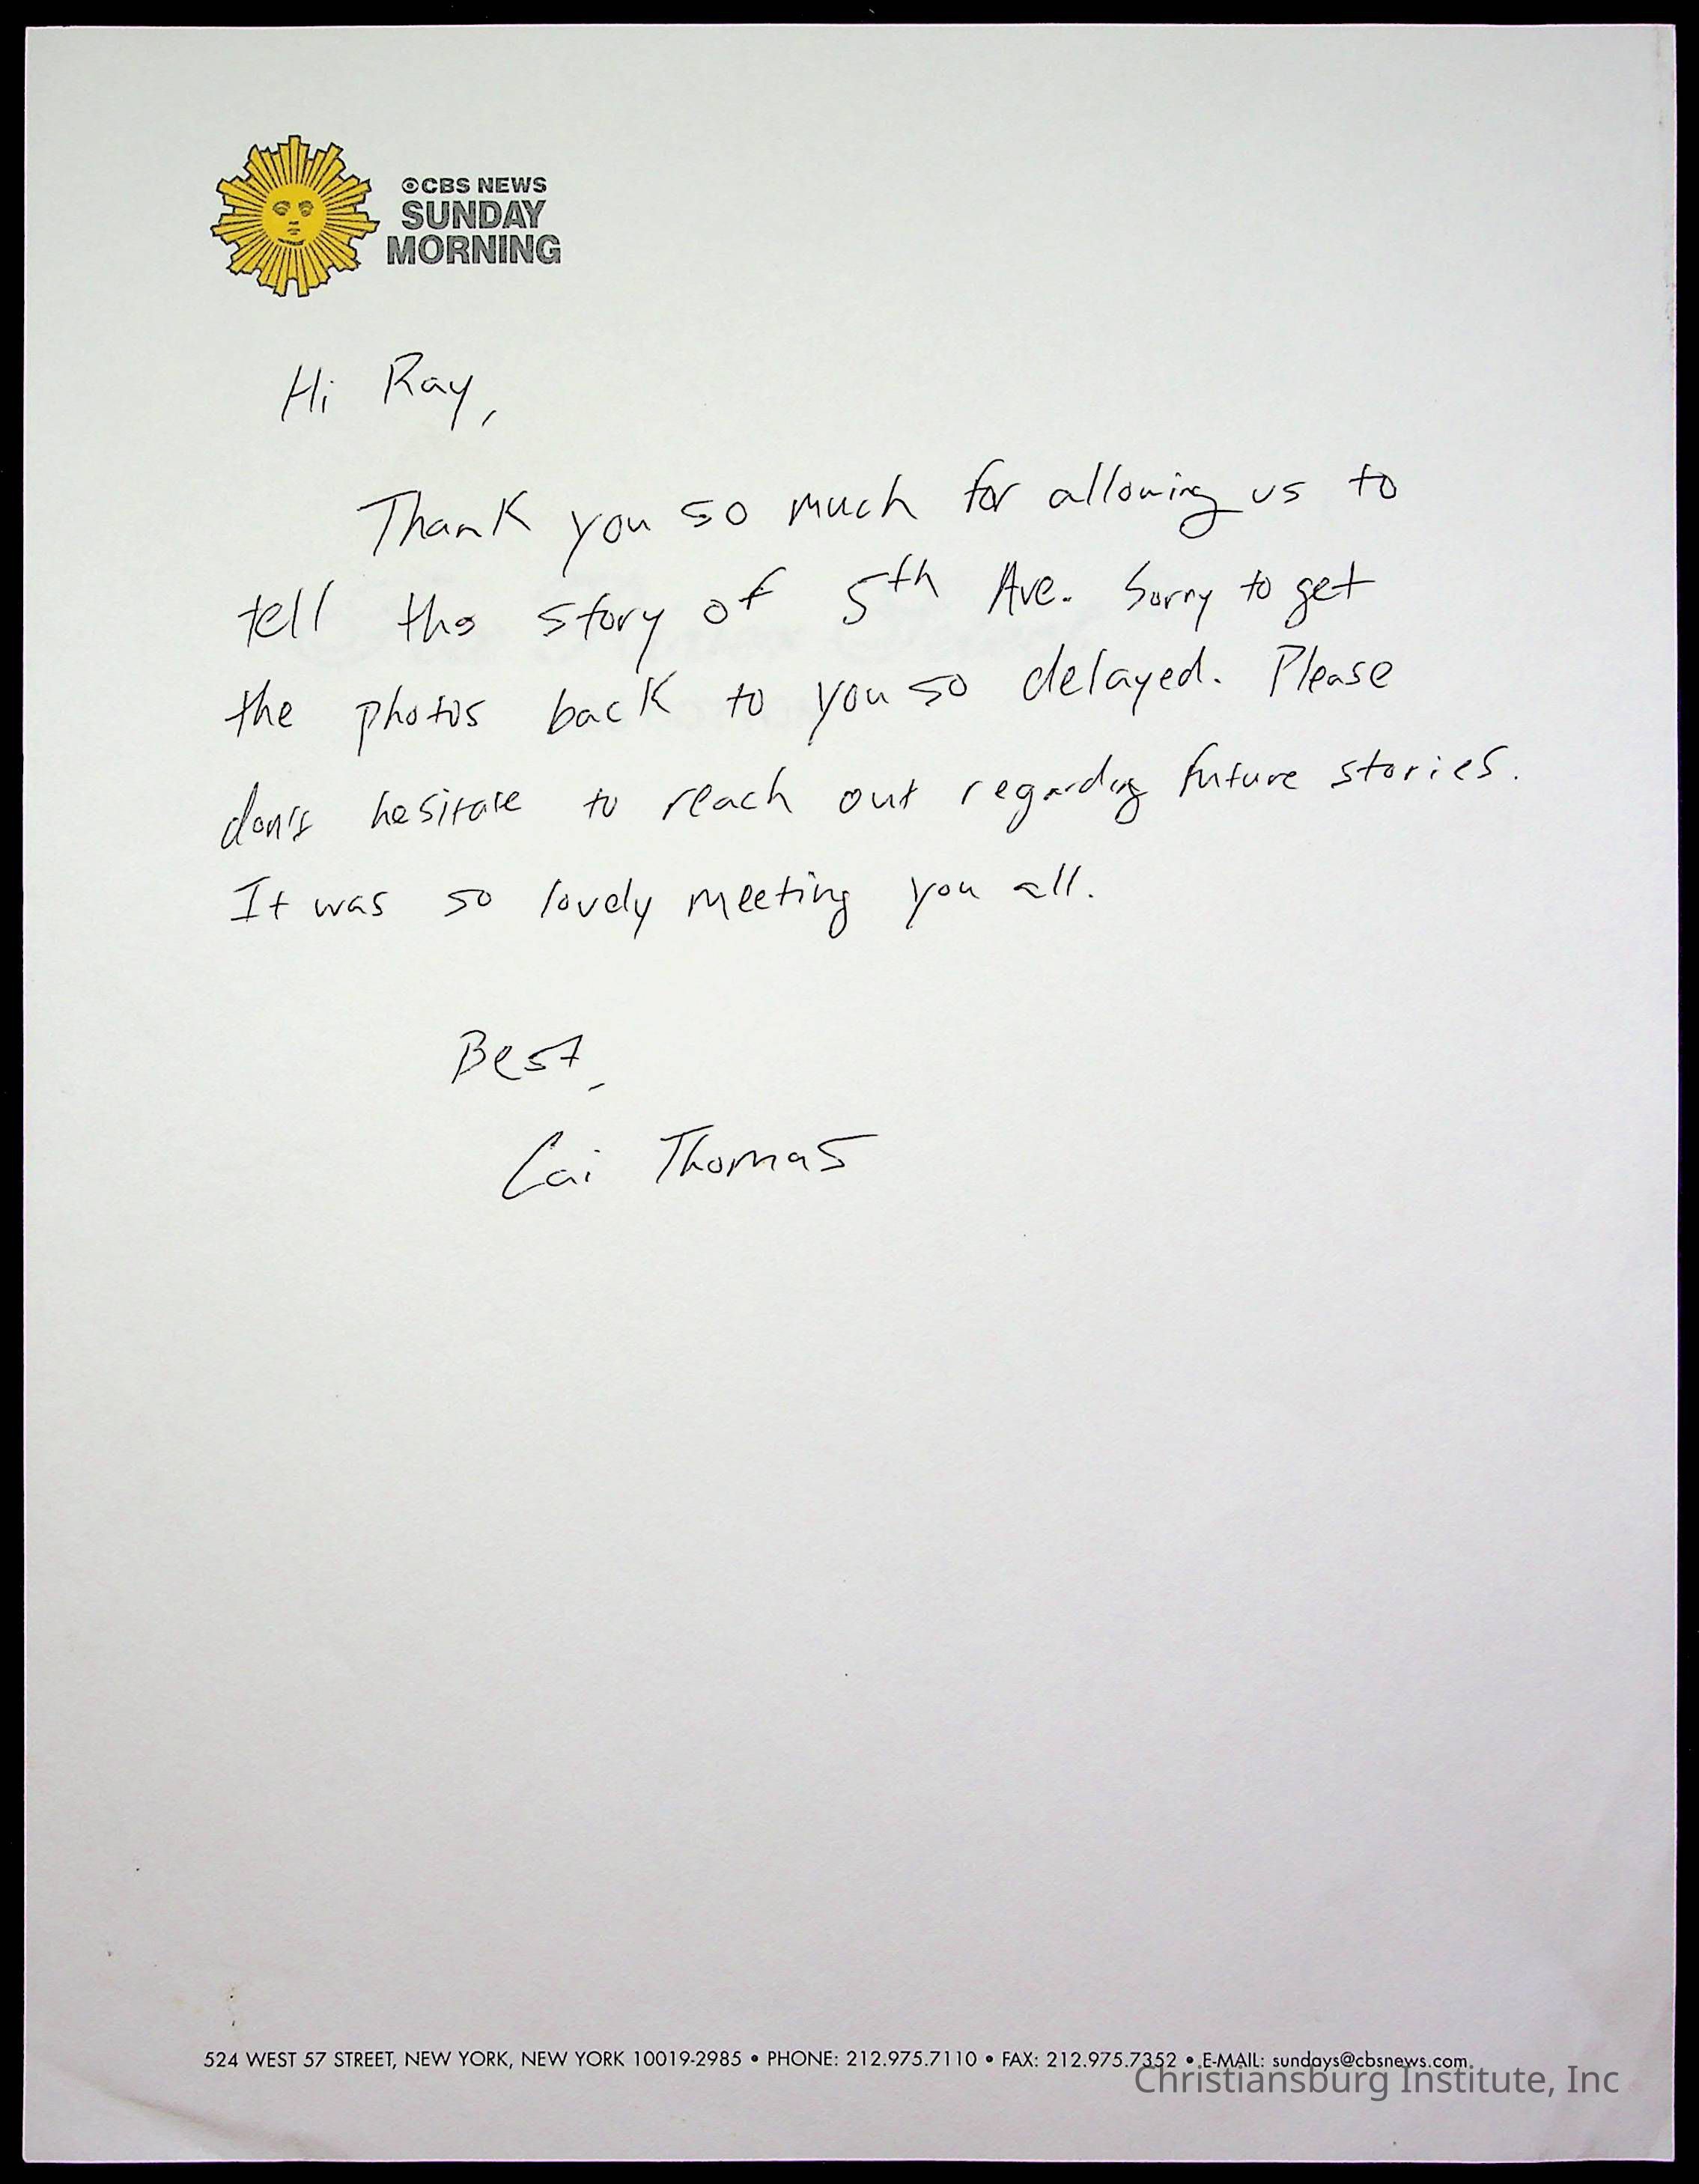 CBS NEWS
SUNDAY
MORNING
Hi Ray,
Thank you so much for allowing us to
tell the story of 5th Ave. Sorry to get
the photos back to you so delayed. Please
don't hesitate to reach out regarding future stories.
It was so lovely meeting you all.
Best,
Cai Thomas
524 WEST 57 STREET, NEW YORK, NEW YORK 10019-2985 • PHONE: 212.975.7110 • FAX: 212.975.7352 • E-MAIL: sundays@cbsnews.com
Christiansburg Institute, Inc